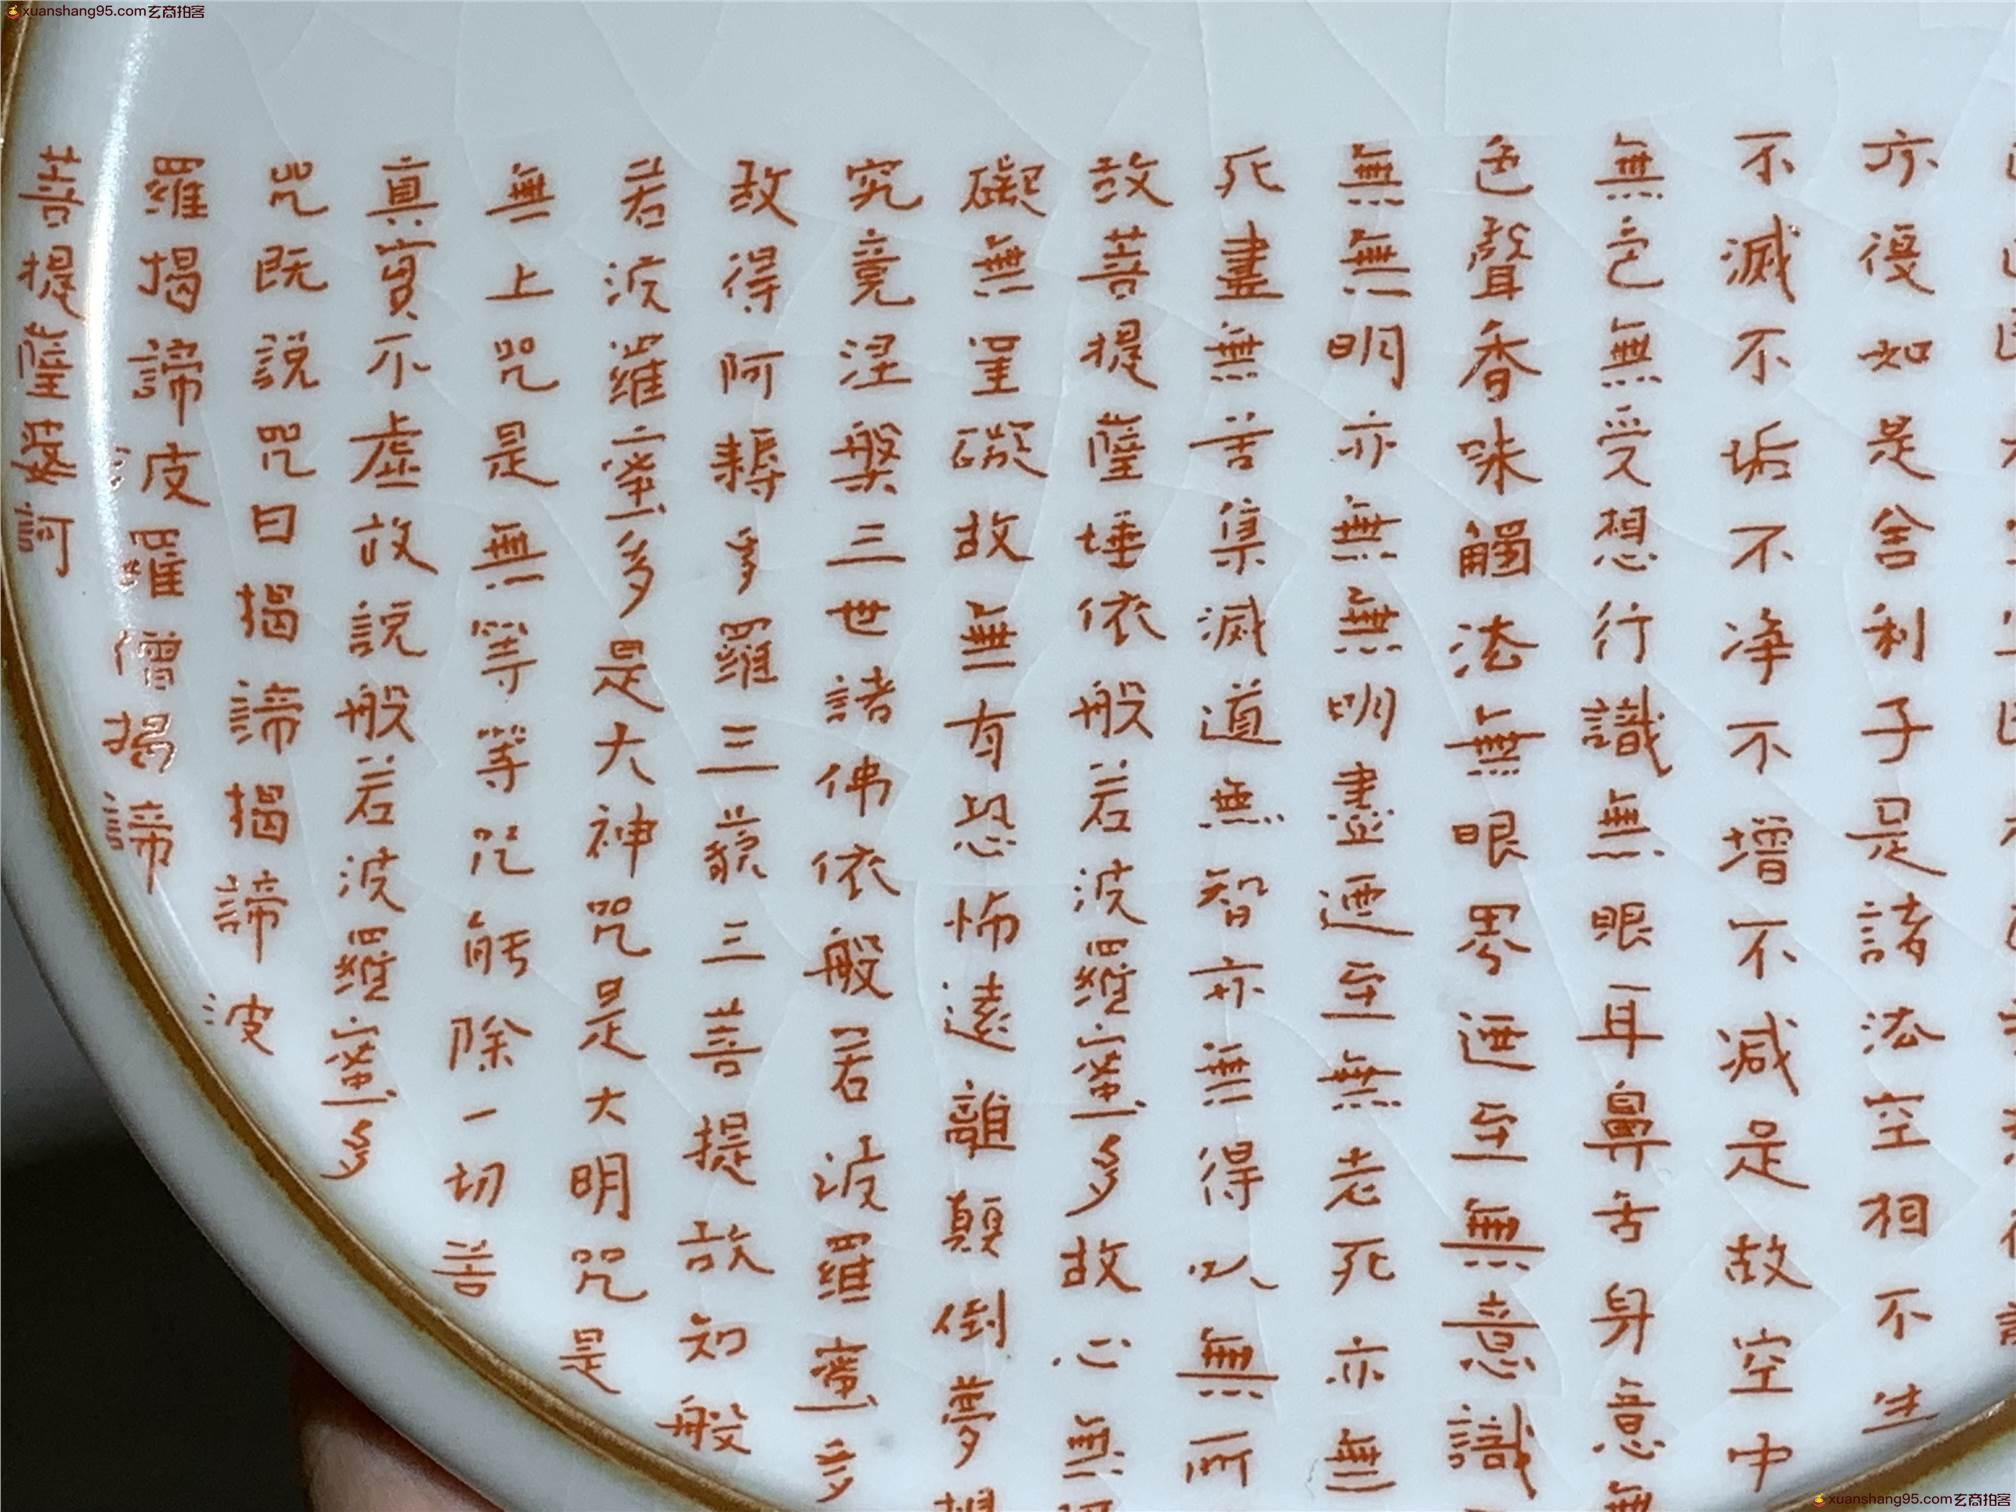 xuanshang95.com玄商拍客
亦復如是舍利子是諸法空相不生
不滅不垢不净不增不減是故空中
無色無受想行識無眼耳鼻舌身意無
色聲香味觸法無眼界迺至無意識
無無明亦無無明盡迺至無老死亦無
死盡無苦集滅道無智亦無得以無所
故菩提薩埵依般若波羅蜜多故心無
礙無罣礙故無有恐怖遠離顛倒夢想
究竟涅槃三世諸佛依般若波羅蜜多
故得阿耨多羅三藐三菩提故知般
若波羅蜜多是大神咒是大明咒是
無上咒是無等等咒能除一切苦
真實不虛故說般若波羅蜜多
咒既說咒曰揭諦揭諦波
羅揭諦波羅僧揭諦
菩提薩婆訶
xuanshang95.com玄商拍客